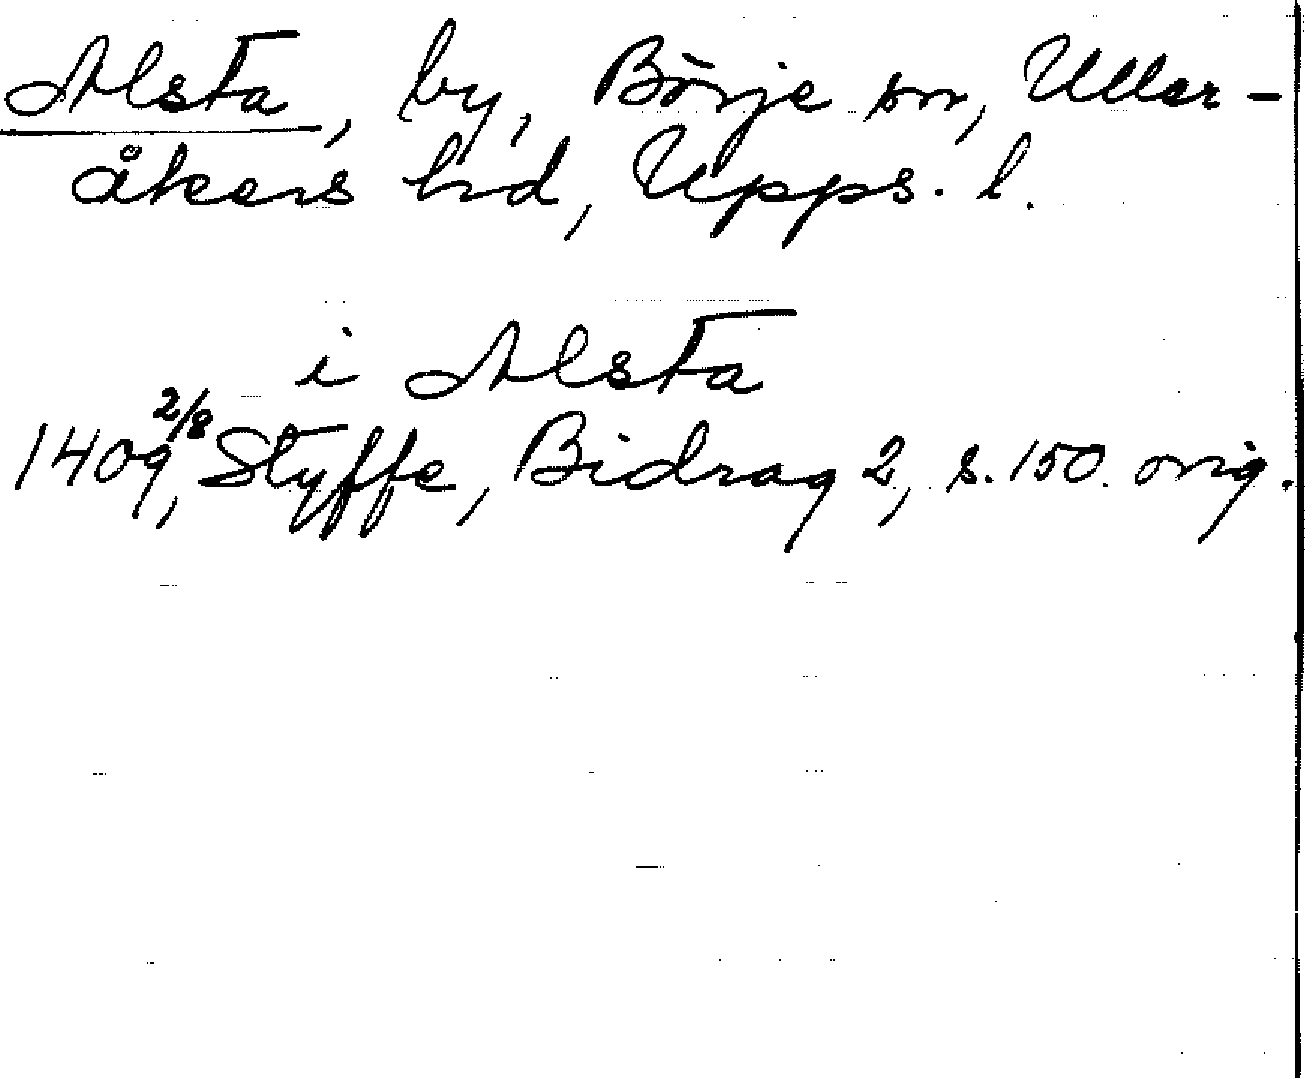 Alsta, by, Börje sn, Uller-
åkers hd, Upps. l.
i Alsta
1409 2/8, Styffe, Bidrag 2, s. 150. orig.